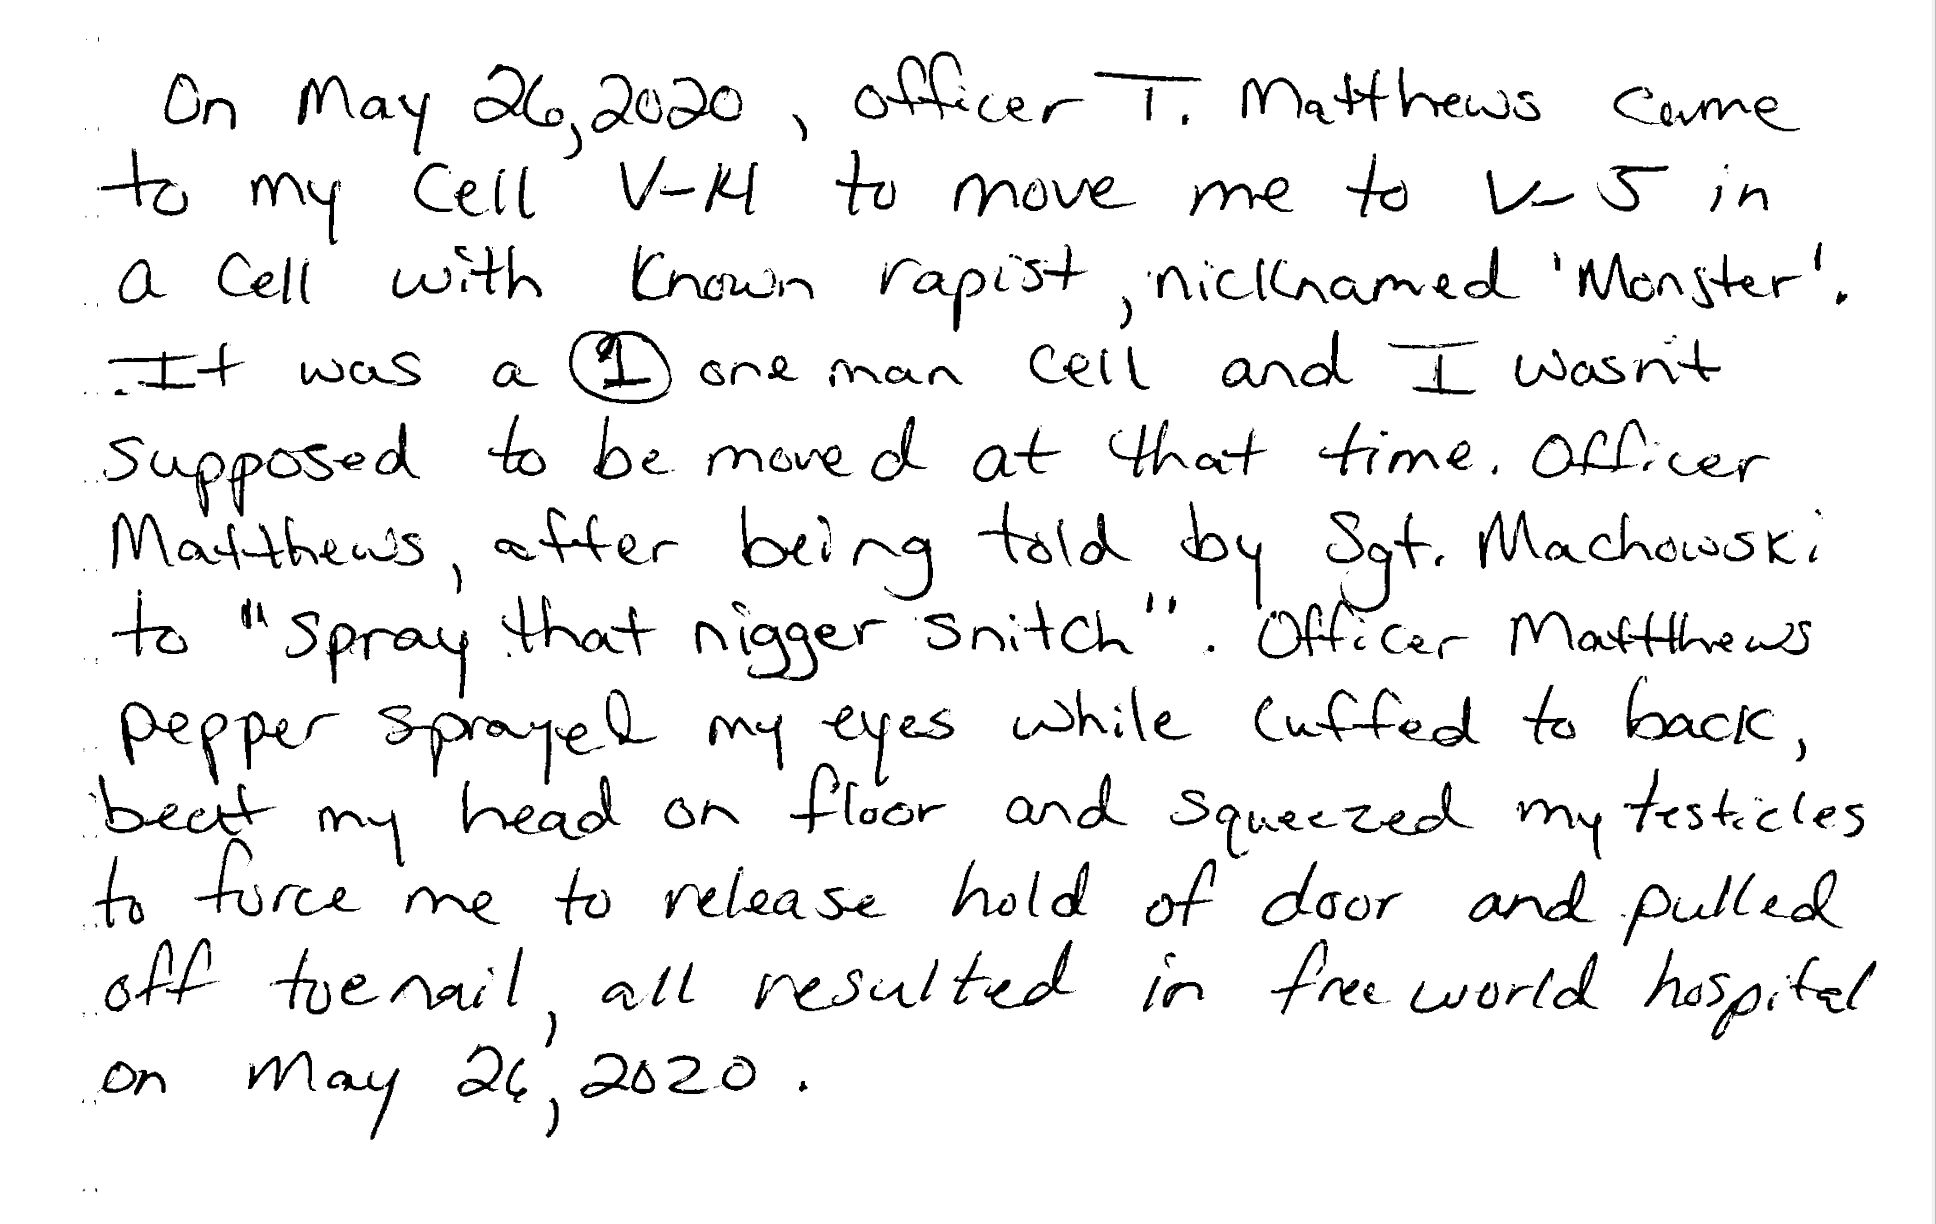 On May 26, 2020, officer T. Matthews came
to my Cell V-14 to move me to V-5 in
a Cell with Known rapist, nicknamed 'Monster'.
It was a ① one man cell and I wasn't
supposed to be moved at that time. Officer
Matthews, after being told by Sgt. Machowski
to "Spray that nigger snitch". Officer Matthews
pepper sprayed my eyes while cuffed to back,
beat my head on floor and squeezed my testicles
to force me to release hold of door and pulled
off toenail, all resulted in free world hospital
on May 26, 2020.